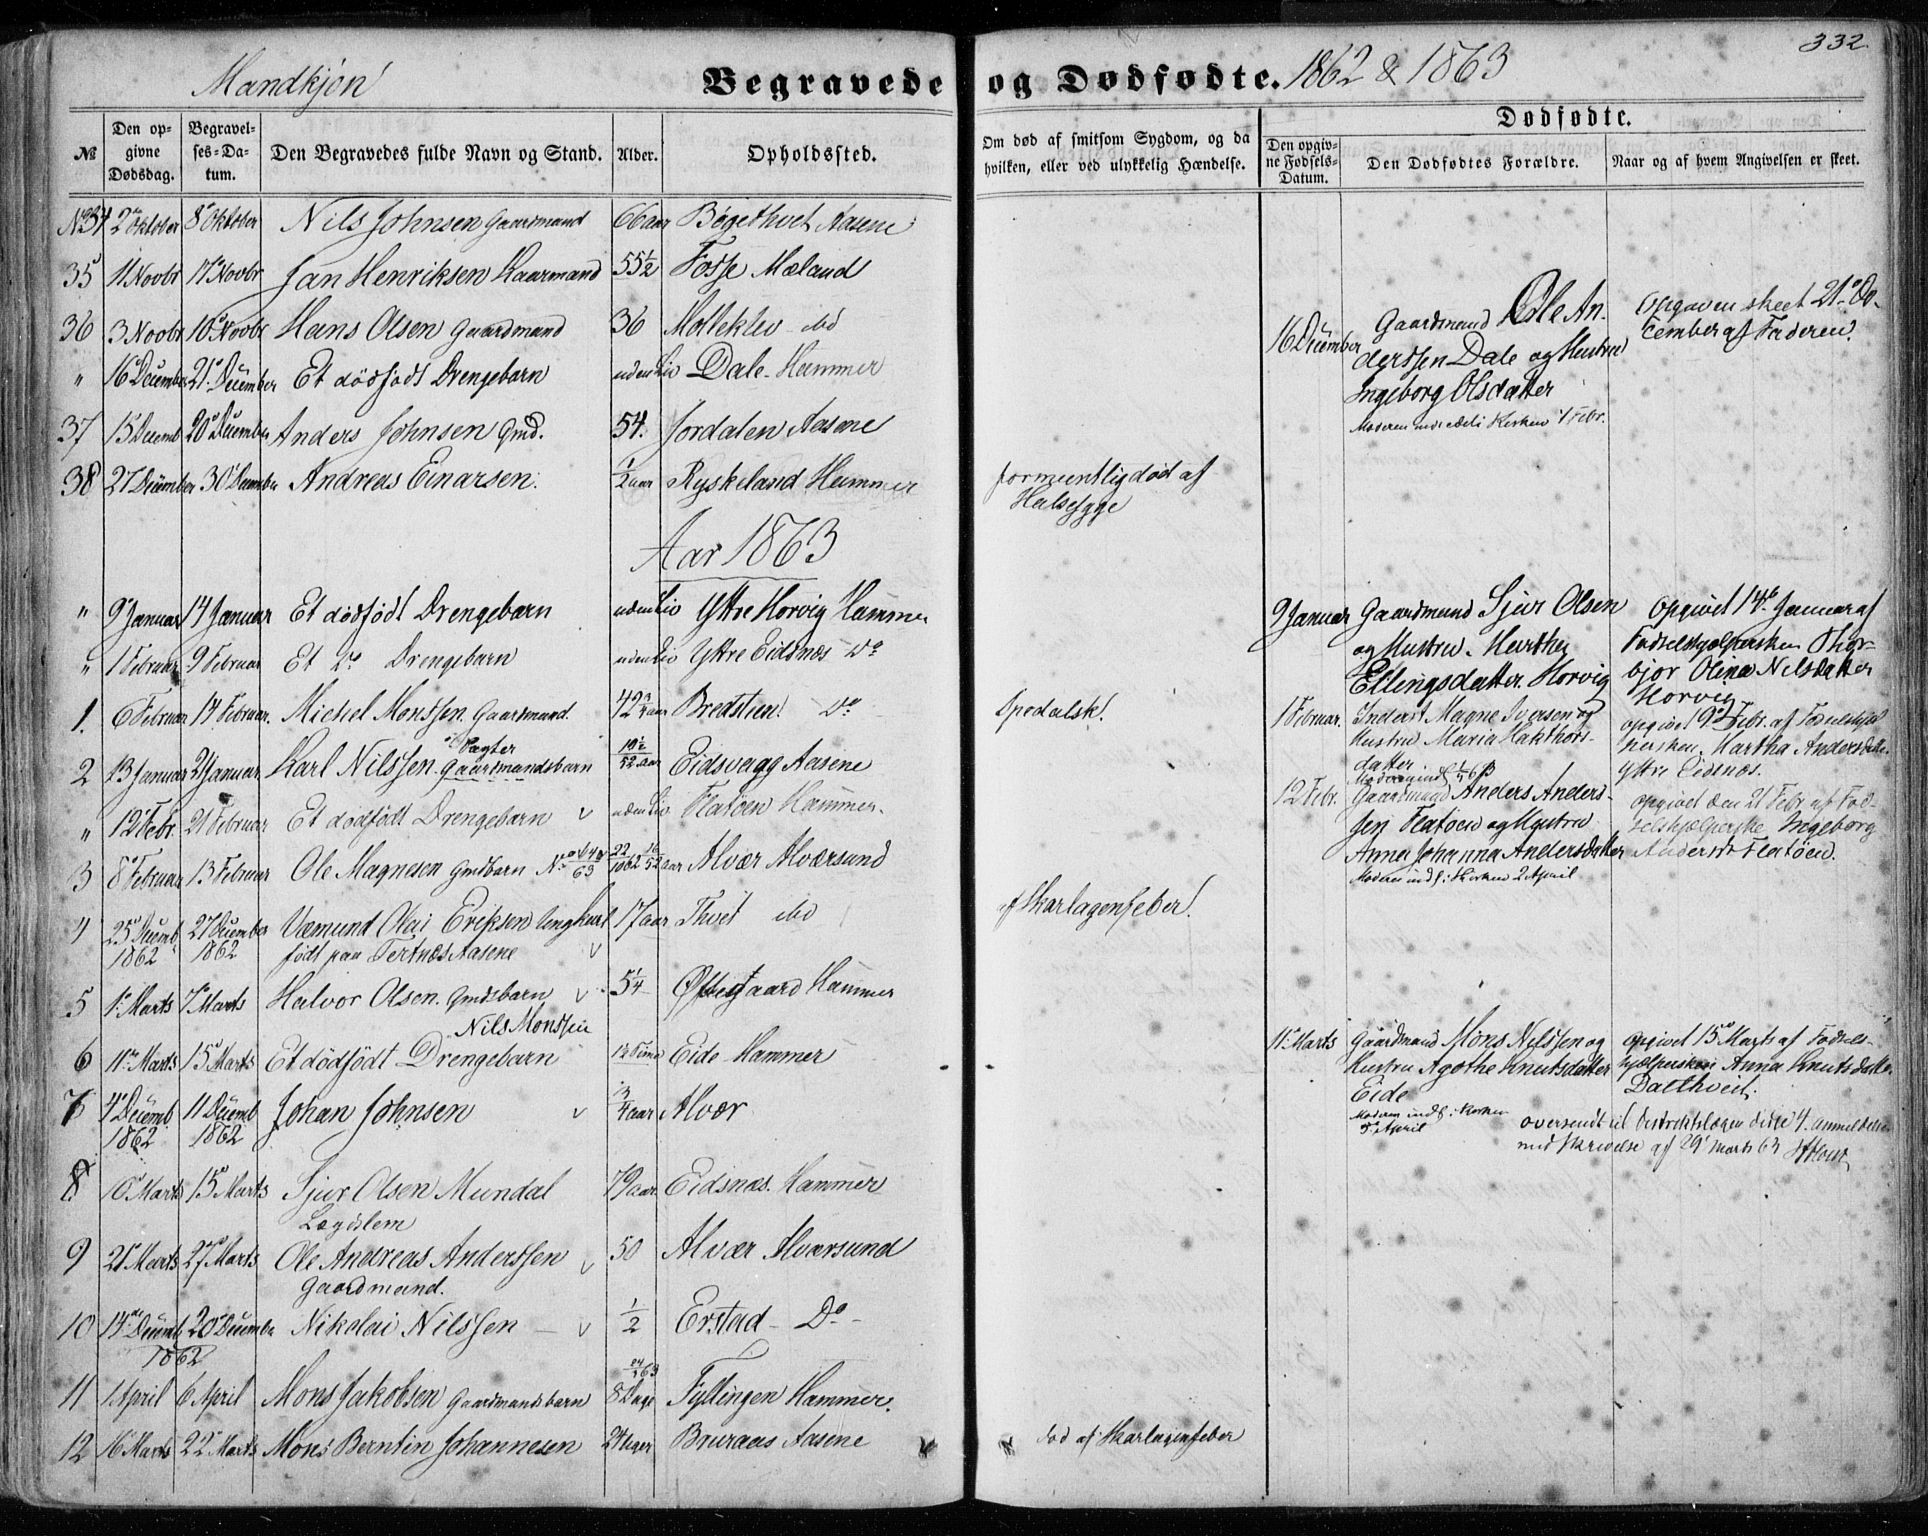 332.
Mandkjön
Begravede og Dødfødte. 1862 & 1863
№
Den opgivne Dødsdag.
Begravelses-Datum.
Den Begravedes fulde Navn og Stand.
Alder.
Opholdssted.
Om død af smitsom Sygdom, og da hvilken, eller ved ulykkelig Hændelse.
Dødfødte.
Den opgivne Fødsels-Datum.
Den Dødfødtes Forældre.
Naar og af hvem Angivelsen er skeet.
34 2 Oktober 8 Oktober Nils Johnsen Gaardmand 66 aar Aasene
35 11 Novbr 17 Novbr Jan Henriksen Kaarmand 55½ Fosse Mæland
36 3 Novbr 10 Novbr Hans Olsen Gaardmand 36
" 16 December 21 December Et dödfödt Drengebarn uden Liv Dale Hammer
16 December Gaardmand Ole An-
derssen Dale og Hustru
Ingeborg Olsdatter
Opgaven skeet 21 De-
cember af Faderen.
37 15 Decemb 20 December Anders Johnsen Gmd. 54. Jordalen Aasene
38 27 December 30 December Andreas Einarsen. ½ aar Ryskeland Hammer formentlig død af
Halssyge
Aar 1863
" 9 Januar 14 Januar Et dödfödt Drengebarn uden Liv Yttre Horvig Hammer
9 Januar Gaardmand Sjur Olsen
og Hustru Martha
Ellingsdatter Horvig
Opgivet 14 Januar af
Fødselshjælpersken Thor-
bjor Olina Nilsdatter
Horvig
" 1 Februar 9 Februar Et do Drengebarn uden Liv Yttre Eidsnæs Do
1 Februar. Inderst Magne Iversen og
Hustru Maria Hakthors-
datter
opgivet 9 Febr. af Fødselshjæl-
persken Martha Andersdatter
Yttre Eidsnæs.
1. 6 Februar 14 Februar. Michel Monssen Gaardmand. 42 aar Bredstien Do Spedalsk.
2 13 Januar 21 Januar Karl Nilssen Gaardmandsbarn Eidsvaag Aasene
" 12 Febr. 21 Februar Et dödfödt Drengebarn uden Liv Flatöen Hammer.
12 Febr. Gaardmand Anders Anders-
sen Flatöen og Hustru
Anna Johanna Andersdatter
Moderen indl. i Kirken 2 April
opgivet den 21 Febr. af Fød-
selshjælperske Ingeborg
Andersdr Flatöen.
3 8 Februar 13 Februar Ole Magnesen Gmdbarn Alvær Alværsund
4 25 Decemb. 1862 27 December 1862 Væmund Olai Eriksen Ungkarl 17 aar Thvet ibd af Skarlagensfeber.
födt paa Tertnæs Aasene
5 1 Marts 7 Marts Halvor Olsen. Gmdsbarn 5¼ Hammer
Nils Monssen
6 11 Marts 15 Marts Et dödfödt Drengebarn Eide Hammer
11 Marts Gaardmand Mons Nilssen og
Hustru Agothe Knutsdatter
Eide
opgivet 15 Marts af Fødsels-
hjælpersken Anna Knutsdatter
Dalthveit.
7 4 Decemb 1862 11 Decemb 1862 Johan Johnsen ¾ aar Alvær
oversendt til Distriktslægen disse 4 anmeldelser
med skrivelse af 29 Marts 63
8 6 Marts 15 Marts Sjur Olsen Mundal 79 aar Eidsnæs Hammer
Lægdslem
9 21 Marts 27 Marts Ole Andreas Anderssen 50 Alvær Alværsund
Gaardmand.
10 14 Decemb 1862 20 December Nikolai Nilssen ½ Erstad Do
11 1 April 6 April Mons Jakobsen Gaardmandsbarn 8 Dage Fyllingen Hammer.
12 16 Marts 22 Marts Mons Berntin Johannesen Bruraas Aasene død af Skarlagensfeber